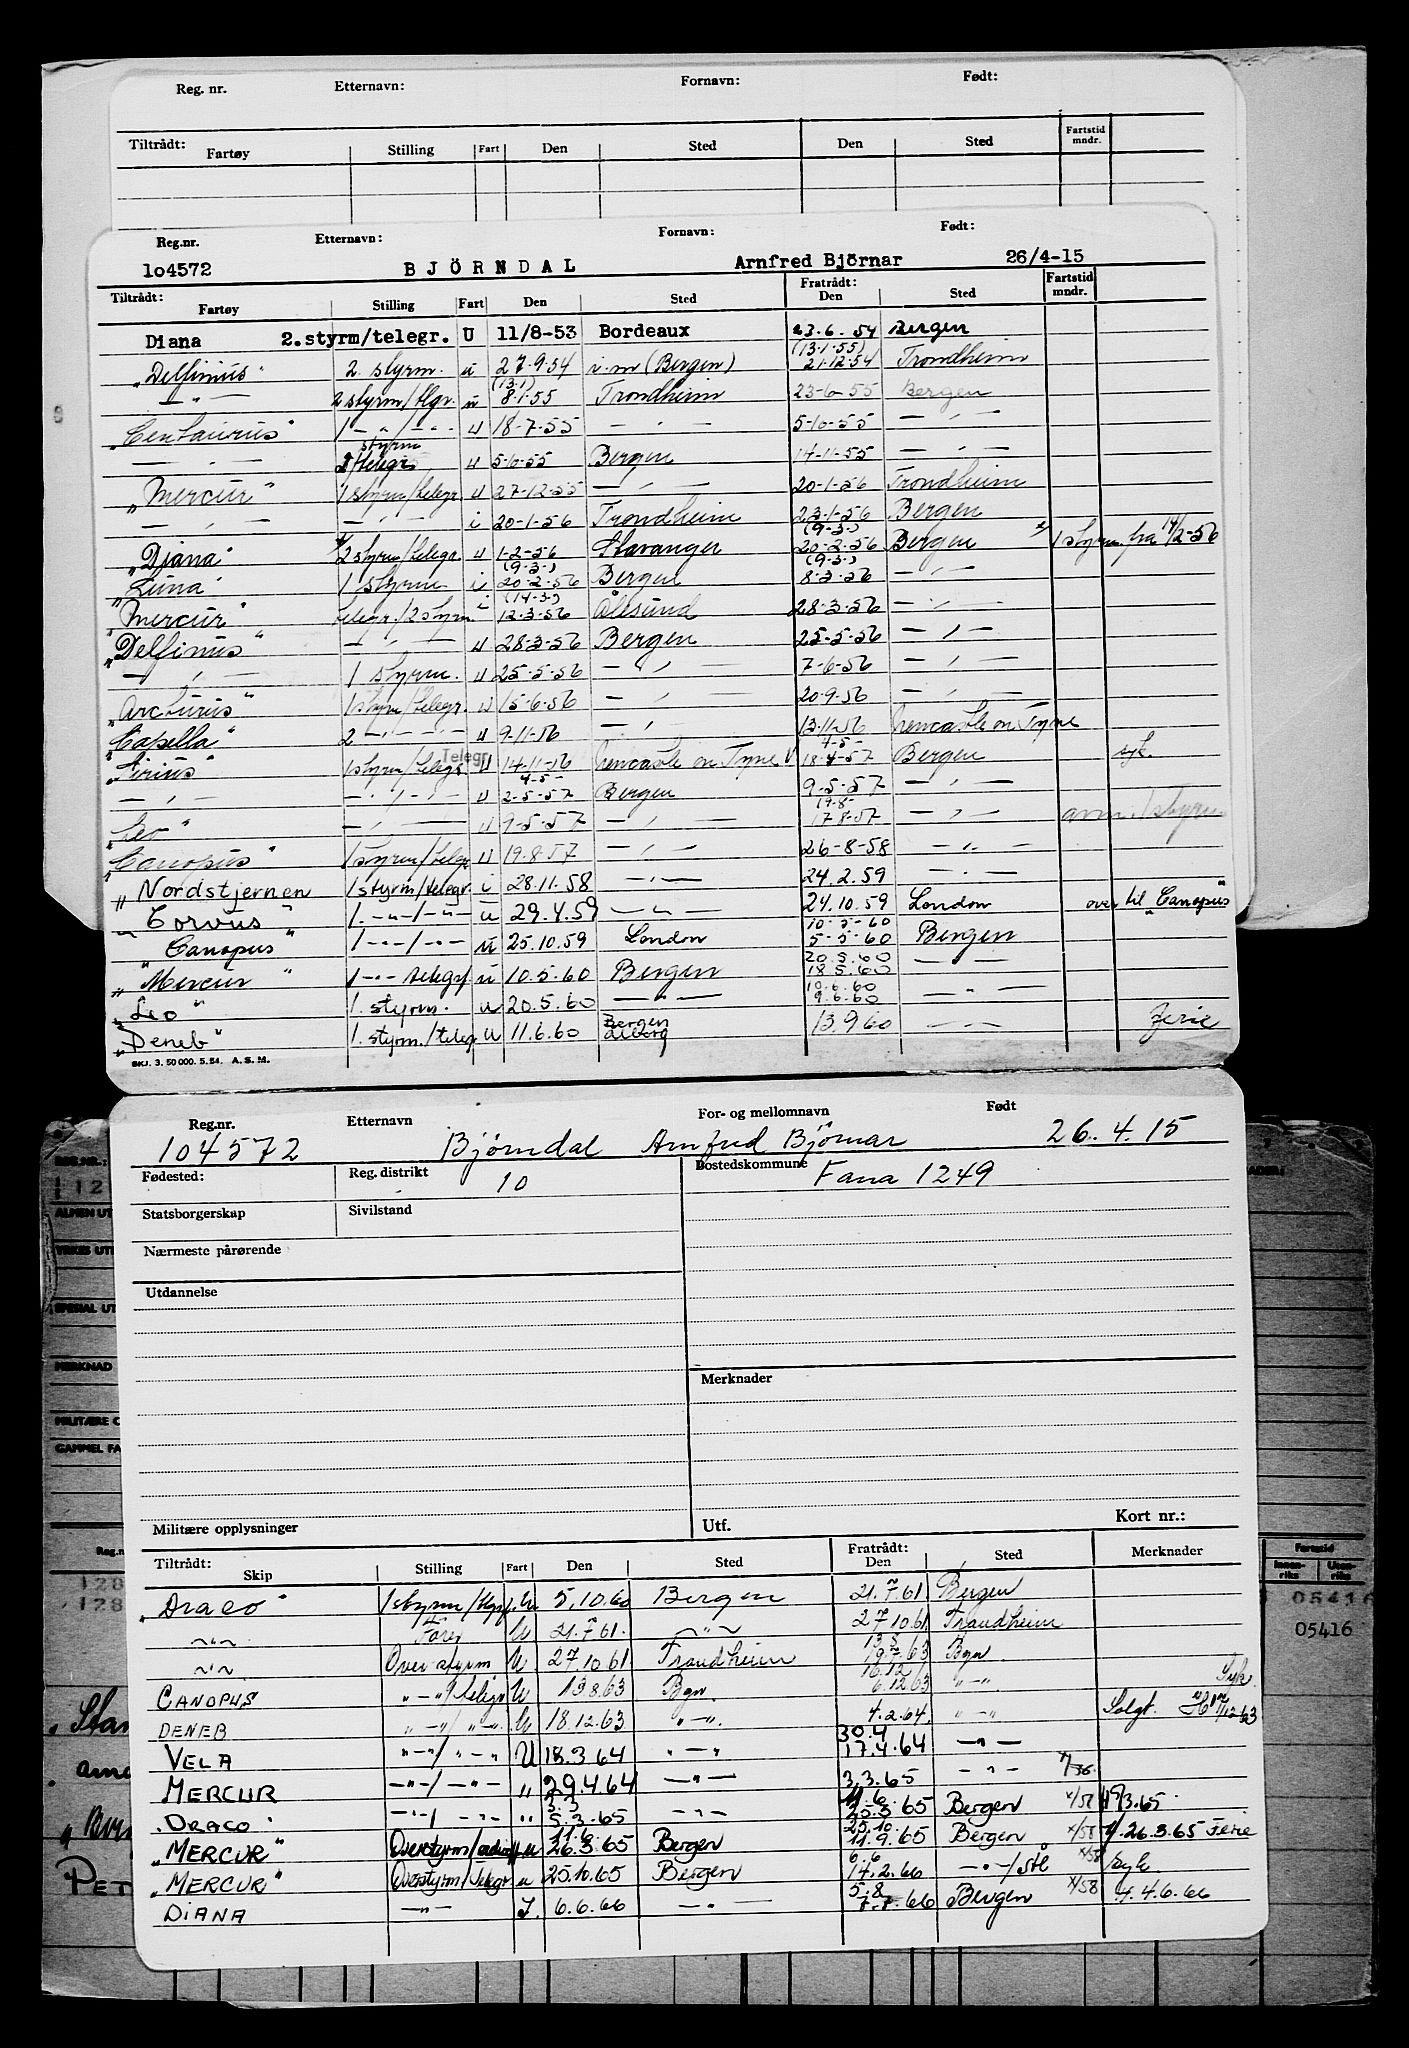 Reg. nr. Etternavn: Fornavn: Født:
Tiltrådt: Fartøy Stilling Fart Den Sted Den Sted Fartstid mndr.
Reg.nr. Etternavn: Fornavn: Født:
104572 BJÖRNDAL Arnfred Björnar 26/4-15
Tiltrådt: Fratrådt: Fartstid
Fartøy Stilling Fart Den Sted Den Sted mndr.
Diana 2.styrm/telegr. U 11/8-53 Bordeaux 23.6.54 Bergen
(13.1.55)
"Delfinus" 2. styrm. u 27.9.54 i.m (Bergen) 21.12.54 Trondheim
(13.1)
— " — 2 styrm/tlgr. u 8.1.55 Trondheim 23-6-55 Bergen
"Centaurus" 1 — " — / — " — u 18-7-55 — " — 5-10-55 — " —
styrm
— " — 2/telegr. u 5-10-55 Bergen 14-11-55 — " —
"Mercur" 1 styrm/telegr u 27-12-55 — " — 20-1-56 Trondheim
— " — — " — i 20-1-56 Trondheim 23-1-56 Bergen
(9-3-)
"Diana" x/ 2 styrm/telegr. u 1-2-56 Stavanger 20-2-56 Bergen x/ 1 styrm. fra 14/2-56
(9-3-) (9-3-)
"Luna" 1 styrm i 20-2-56 Bergen 8-3-56 — " —
(14-3-)
"Mercur" telegr./2 styrm i 12-3-56 Ålesund 28-3-56 — " —
"Delfinus" — " — u 28-3-56 Bergen 25-5-56 — " —
— " — 1 styrm. u 25-5-56 — " — 7-6-56 — " —
"Arcturus" 1 styrm/telegr. u 15-6-56 — " — 20-9-56 — " —
"Capella" 2 — " — u 9-11-56 — " — 13-11-56 Newcastle on Tyne
Telegr. 4-5-
"Sirius" 1 styrm/telegr u 14-11-56 Newcastle on Tyne 18-4-57 Bergen syk.
4-5-
— " — — " — u 2-5-57 Bergen 9-5-57 — " —
19-8-
"Leo" — " — u 9-5-57 — " — 17-8-57 — " — 1 styrm
"Canopus" 1 styrm/telegr u 19.8.57 — " — 26-8-58 — " —
"Nordstjernen 1 styrm/telegr. i 28.11.58 — " — 24.2.59 — " —
"Corvus" 1. — " — / — " — u 29.4.59 — " — 24.10.59 London over til "Canopus"
10-5-60
"Canopus" 1 — " — / — " — u 25.10.59 London 5-5-60 Bergen
20.5.60
"Mercur" 1 — " — telegr. u 10.5.60 Bergen 18.5.60 — " —
10.6.60
"Leo" 1. styrm. u 20.5.60 — " — 9.6.60 — " —
Bergen
"Deneb" 1. styrm./telegr u 11.6.60 Ålborg 13.9.60 — " — Ferie
SKJ. 3. 50 000. 5. 54. A. S. M.
Reg.nr. Etternavn For- og mellomnavn Født
104572 Bjørndal Arnfred Bjørnar 26.4.15
Fødested: Reg. distrikt 10 Bostedskommune Fana 1249
Statsborgerskap Sivilstand
Nærmeste pårørende
Utdannelse
Merknader
Militære opplysninger Utf. Kort nr.:
Tiltrådt: Fratrådt:
Skip Stilling Fart Den Sted Den Sted Merknader
"Draco" 1 styrm/tlgr. U 5.10.60 Bergen 21.7.61 Bergen
— " — Fører U 21.7.61. — " — 27.10.61 Trondheim
13.8
— " — Overstyrm U. 27.10.61 Trondheim 19.7.63 Bgn
16.12
CANOPUS — " — / telegr U 19.8.63 Bgn. 6.12.63 — " — Syk
DENEB — " — / — " — U 18.12.63 — " — 4.2.64. — " — Solgt.
30.4
VELA — " — / — " — U 18.3.64 — " — 17.4.64 — " —
MERCUR — " — / — " — " 29.4.64 — " — 3.3.65 — " —
3.3 11.6
DRACO — " — / — " — " 5.3.65 — " — 25.3.65 Bergen x/58
11.6 25.10
"MERCUR" Overstyrm u 26.3.65 Bergen 11.9.65 Bergen x/58 26.3.65 Ferie
6.6
"MERCUR" Overstyrm/telegr u 25.10.65 Bergen 14.2.66 — " — x/58 Syk
5.8
DIANA — " — I. 6.6.66 — " — 8.66 Bergen x/58 4.6.66
REG.NR.:
ALMEN UT
YRKES UT
SPESIAL UT
MERKNAD
MILITÆRE O
GAMMEL FA
Fartstid
Innenriks Utenriks
05416
05416